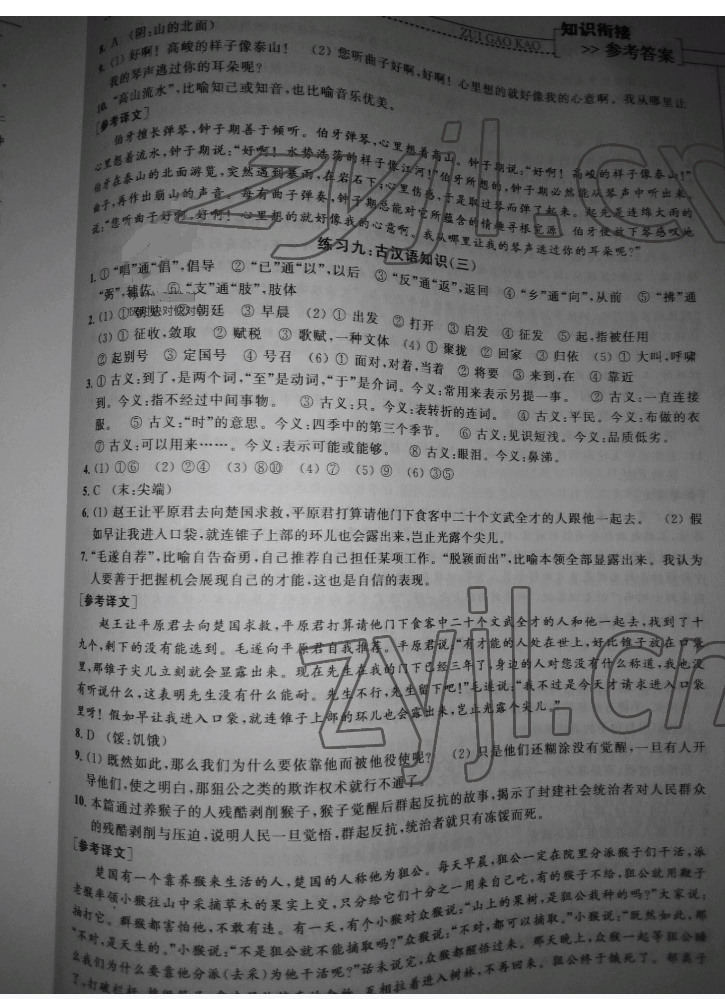 ZUI GAO KAO
知识衔接
>> 参考答案
8. A (阴:山的北面)
9. (1) 好啊！高峻的样子像泰山！ (2) 您听曲子好啊,好啊！心里想的就好像我的心意啊。我从哪里让
我的琴声逃过你的耳朵呢?
10. “高山流水”,比喻知己或知音,也比喻音乐优美。
[参考译文]
伯牙擅长弹琴,钟子期善于倾听。伯牙弹琴,心里想着高山。钟子期说:“好啊！高峻的样子像泰山!”
心里想着流水,钟子期说:“好啊！水势浩荡的样子像江河!”伯牙所想的,钟子期必然能从琴声中听出来。
伯牙在泰山的北面游览,突然遇到暴雨,在岩石下;心里伤感,于是取过琴而弹了起来。起先是连绵大雨的
曲子,再作出崩山的声音。每有曲子弹奏,钟子期总能对它所蕴含的情趣寻根究源。伯牙便放下琴感叹地
说:“您听曲子好啊,好啊！心里想的就好像我的心意啊。我从哪里让我的琴声逃过你的耳朵呢?”
练习九:古汉语知识(三)
1. ①“唱”通“倡”,倡导 ②“已”通“以”,以后 ③“反”通“返”,返回 ④“乡”通“向”,从前 ⑤“拂”通
“弼”,辅佐 ⑥“支”通“肢”,肢体
2. (1) ① 朝见 ② 朝廷 ③ 早晨 (2) ① 出发 ② 打开 ③ 启发 ④ 征发 ⑤ 起,指被任用
(3) ① 征收,敛取 ② 赋税 ③ 歌赋,一种文体 (4) ① 聚拢 ② 回家 ③ 归依 (5) ① 大叫,呼啸
② 起别号 ③ 定国号 ④ 号召 (6) ① 面对,对着,当着 ② 将要 ③ 来到,在 ④ 靠近
3. ① 古义:到了,是两个词,“至”是动词,“于”是介词。今义:常用来表示另提一事。 ② 古义:一直连接
到。今义:指不经过中间事物。 ③ 古义:只。今义:表转折的连词。 ④ 古义:平民。今义:布做的衣
服。 ⑤ 古义:“时”的意思。今义:四季中的第三个季节。 ⑥ 古义:见识短浅。今义:品质低劣。
⑦ 古义:可以用来……。今义:表示可能或能够。 ⑧ 古义:眼泪。今义:鼻涕。
4. (1) ①⑥ (2) ②④ (3) ⑧⑩ (4) ⑦ (5) ⑨ (6) ③⑤
5. C (末:尖端)
6. (1) 赵王让平原君去向楚国求救,平原君打算请他门下食客中二十个文武全才的人跟他一起去。 (2) 假
如早让我进入口袋,就连锥子上部的环儿也会露出来,岂止光露个尖儿。
7. “毛遂自荐”,比喻自告奋勇,自己推荐自己担任某项工作。“脱颖而出”,比喻本领全部显露出来。我认为
人要善于把握机会展现自己的才能,这也是自信的表现。
[参考译文]
赵王让平原君去向楚国求救,平原君打算请他门下食客中二十个文武全才的人和他一起去,找到了十
九个,剩下的没有能选到。毛遂向平原君自我推荐。平原君说:“有才能的人处在世上,好比锥子放在口袋
里,那锥子尖儿立刻就会显露出来。现在先生在我的门下已经三年了,身边的人对您没有什么称道,我也没
有听说什么,这表明先生没有什么能耐。先生不行,先生留下吧!”毛遂说:“我不过是今天才请求进入口袋
里呀！假如早让我进入口袋,就连锥子上部的环儿也会露出来,岂止光露个尖儿。”
8. D (馁:饥饿)
9. (1) 既然如此,那么我们为什么要依靠他而被他役使呢? (2) 只是他们还糊涂没有觉醒,一旦有人开
导他们,使之明白,那狙公之类的欺诈权术就行不通了。
10. 本篇通过养猴子的人残酷剥削猴子,猴子觉醒后群起反抗的故事,揭示了封建社会统治者对人民群众
的残酷剥削与压迫,说明人民一旦觉悟,群起反抗,统治者就只有冻馁而死。
[参考译文]
楚国有一个靠养猴来生活的人,楚国的人称他为狙公。每天早晨,狙公一定在院里分派猴子们干活,派
老猴率领小猴往山中采摘草木的果实上交,只分给它们十分之一用来自己吃,有的猴子不给,狙公就用鞭子
抽打它。群猴都害怕他,不敢有违。有一天,有个小猴对众猴说:“山上的果树,是狙公我种的吗?”大家说:
“不对,是天生的。”小猴说:“不是狙公就不能摘取吗?”众猴说:“不对,都可以摘取。”小猴说:“既然如此,那
么我们为什么要靠他分派(去采)为他干活呢?”话未说完,众猴都醒悟过来。那天晚上,众猴一起等狙公睡
互相拉着进入树林,不再回来。狙公终于饿死了。郁离子
zyjl.cn
zyjl.cn